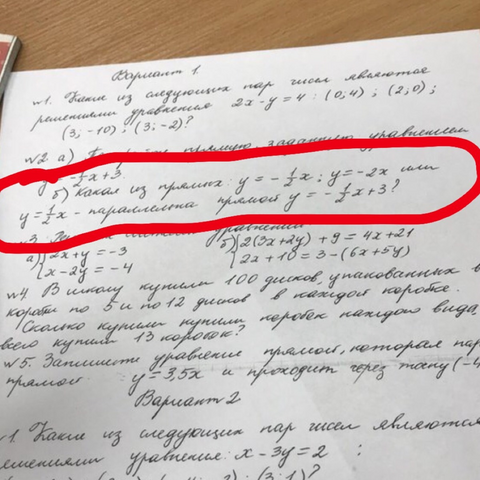 Вариант 1.
№1. Какие из следующих пар чисел являются
решениями уравнения 2x-y=4: (0;4); (2;0);
(3;-10); (3;-2)?
№2 а) прямую, заданную уравнением
y=-1/2x+3.
б) Какая из прямых: y=-1/2x; y=-2x или
y=1/2x - параллельна прямой y=-1/2x+3?
№3. уравнений
а) {2x+y=-3 б) {2(3x+2y)+9=4x+21
{x-2y=-4 {2x+10=3-(6x+5y)
№4. В школу купили 100 дисков, упакованных в
короби по 5 и по 12 дисков в каждой коробке.
Сколько купили купили коробок каждого вида,
всего купили 13 коробок?
№5. Запишите уравнение прямой, которая пар
прямой y=3,5x и проходит через точку (-4
Вариант 2
1 Какие из следующих пар чисел являются
решениями уравнения: x-3y=2 :
(3;1)?